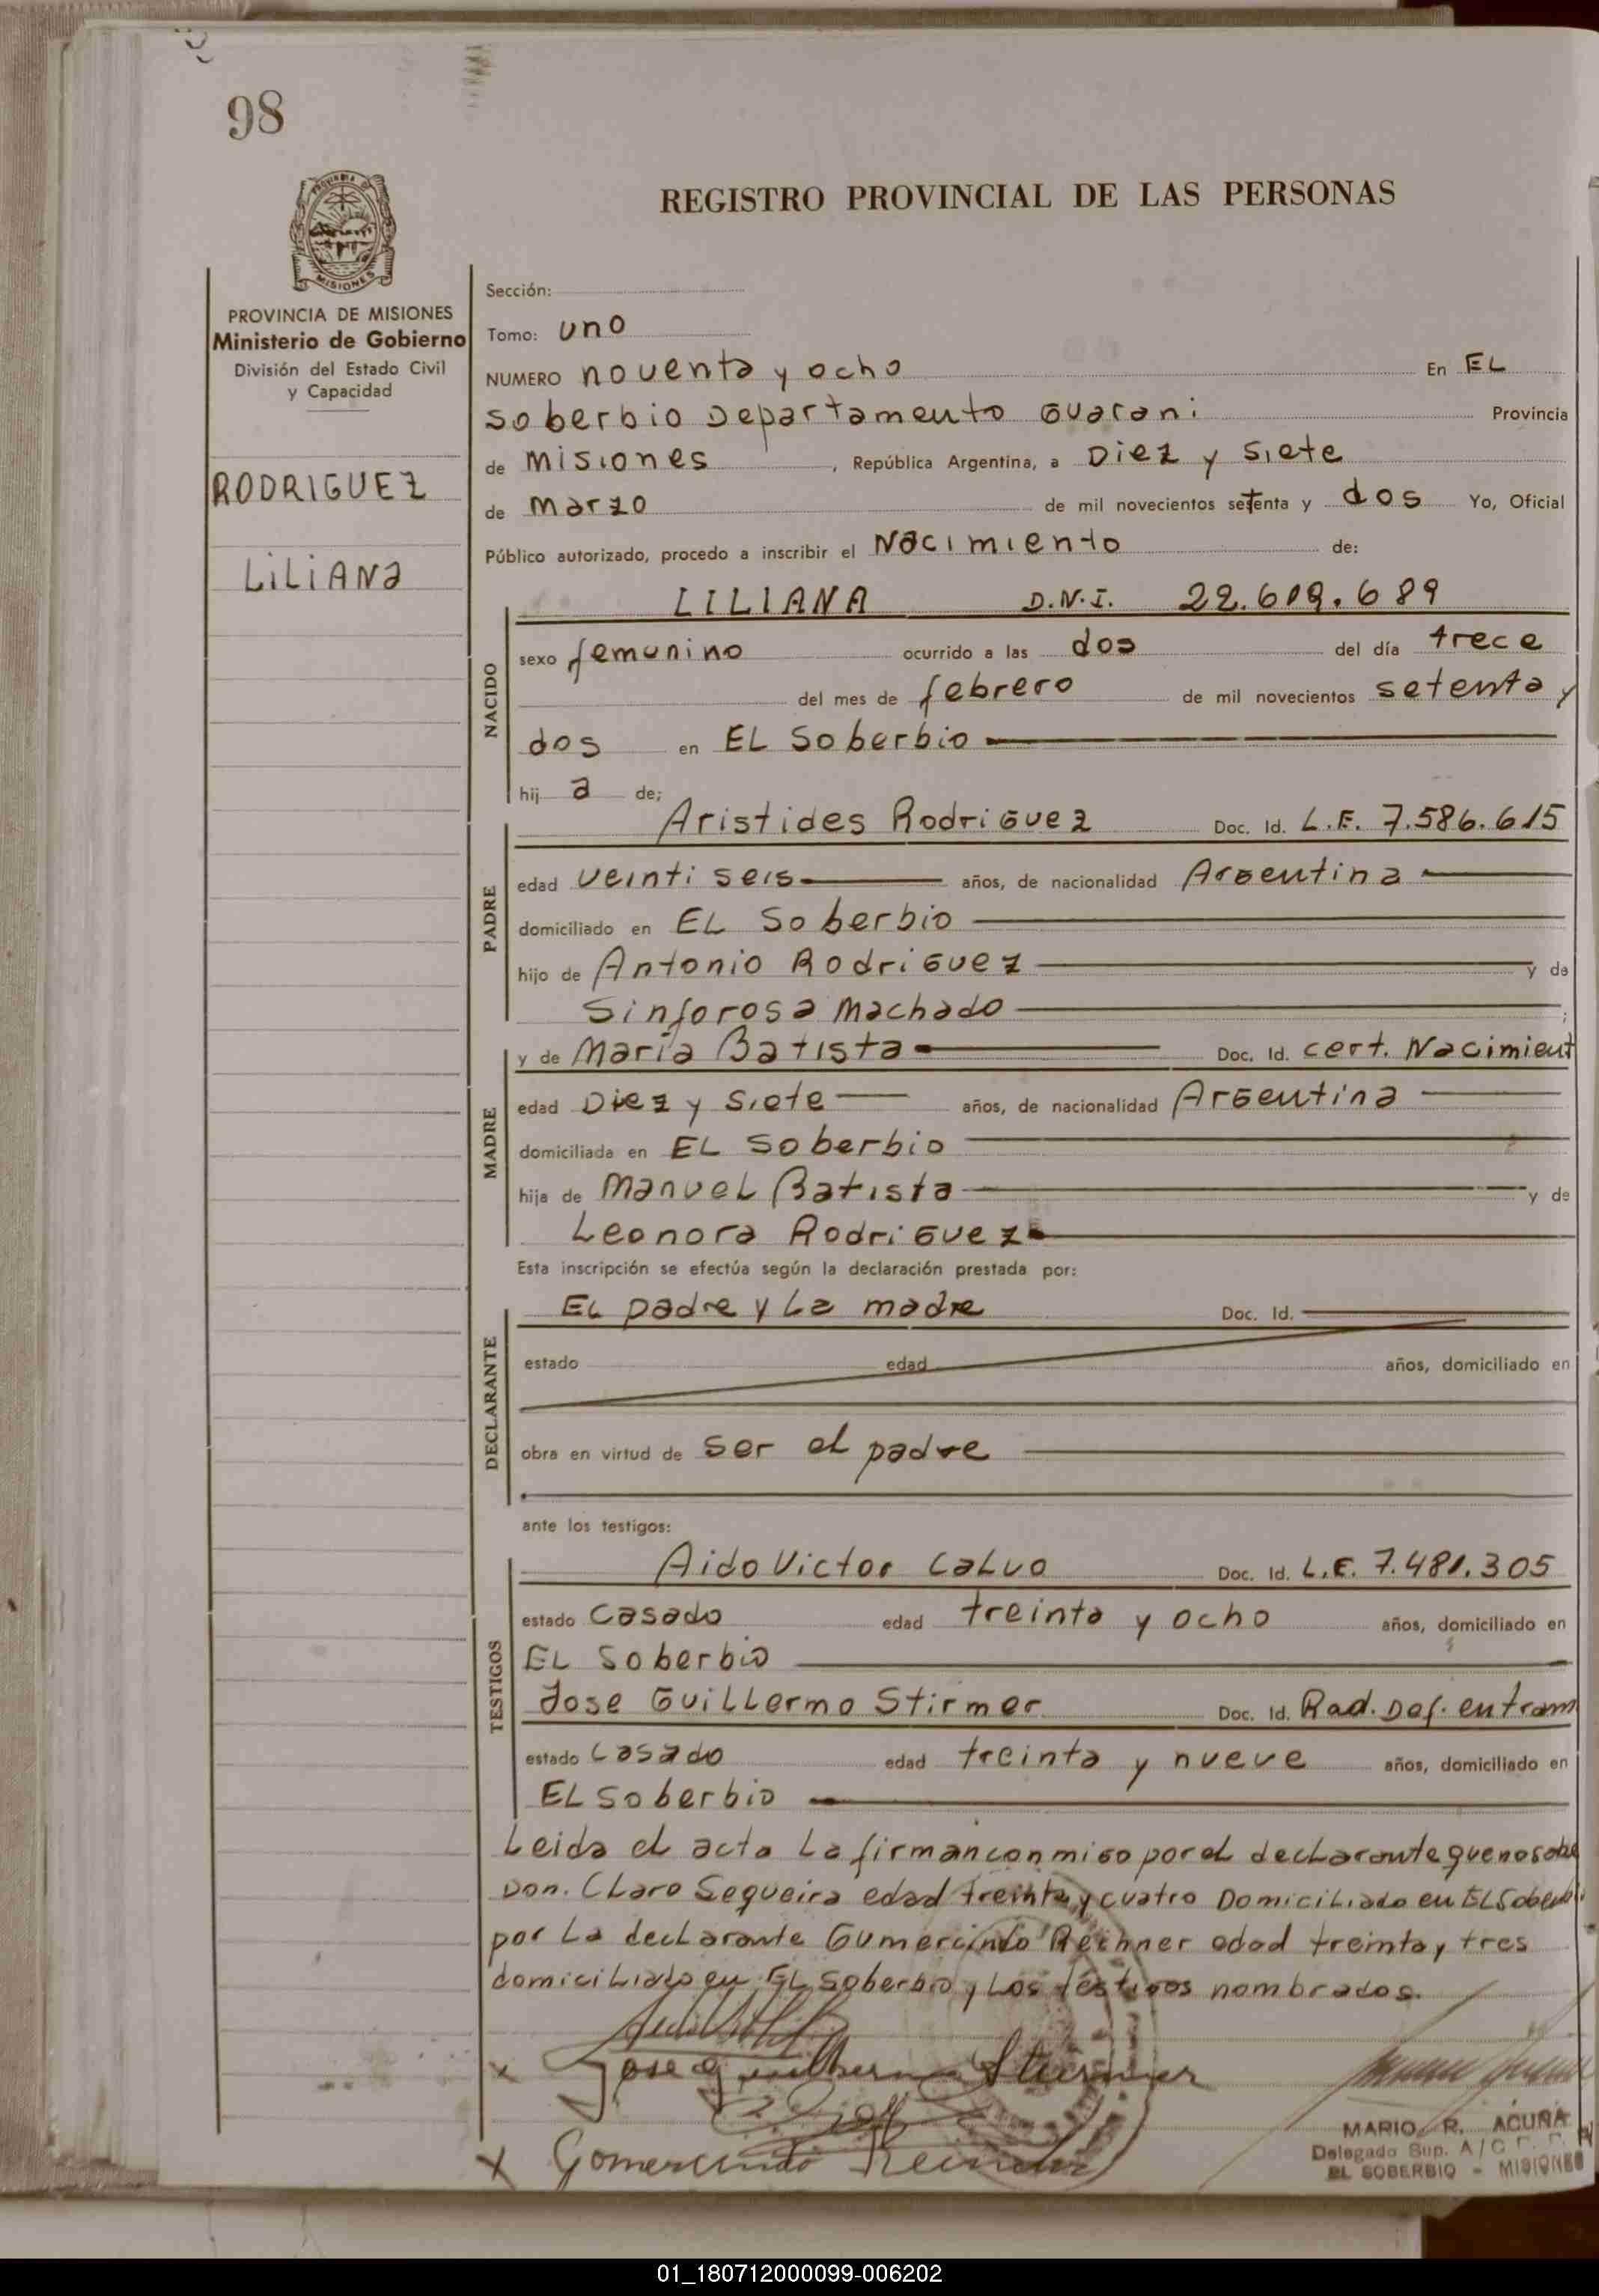 98
REGISTRO PROVINCIAL DE LAS PERSONAS
PROVINCIA DE MISIONES
Ministerio de Gobierno
División del Estado Civil
y Capacidad
RODRIGUEZ
LILIANA
Sección:
Tomo: uno
NUMERO noventa y ocho En EL
Soberbio Departamento Guarani Provincia
de Misiones, República Argentina, a Diez y Siete
de Marzo de mil novecientos setenta y dos Yo, Oficial
Público autorizado, procedo a inscribir el Nacimiento de:
NACIDO
LILIANA D.N.I. 22.619.689
sexo femenino ocurrido a las dos del día trece
del mes de febrero de mil novecientos setenta y
dos en EL Soberbio
hij a de;
PADRE
Aristides Rodriguez Doc. Id. L.E. 7.586.615
edad veinti seis años, de nacionalidad Argentina
domiciliado en EL Soberbio
hijo de Antonio Rodriguez y de
Sinforosa Machado ;
MADRE
y de María Batista Doc. Id. cert. Nacimient
edad Diez y Siete años, de nacionalidad Argentina
domiciliada en EL Soberbio
hija de Manuel Batista y de
Leonora Rodriguez
Esta inscripción se efectúa según la declaración prestada por:
DECLARANTE
EL padre y La madre Doc. Id.
estado edad años, domiciliado en
obra en virtud de ser el padre
ante los testigos:
TESTIGOS
Aido Victor Calvo Doc. Id. L.E. 7.481.305
estado Casado edad treinta y ocho años, domiciliado en
EL Soberbio
Jose Guillermo Stirmer Doc. Id. Rad. Def. en tram
estado Casado edad treinta y nueve años, domiciliado en
EL Soberbio
Leida el acta La firman conmigo por el declarante que no sabe
Don. Claro Sequeira edad treinta y cuatro Domiciliado en EL Soberbi
por La declarante Gumercindo Rechner edad treinta y tres
domiciliado en EL Soberbio y Los testigos nombrados.
x Jose Guilherme Stürmer
x Gomercindo
MARIO R. ACUÑA
Delegado Sup. A/C
EL SOBERBIO - MISIONES
01_180712000099-006202